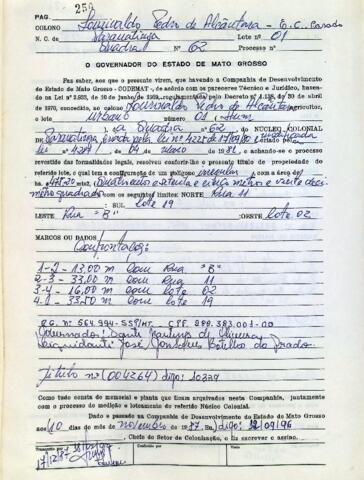 250
PAG.
COLONO Lourivaldo Pedro de Alcântara - E.C. Casado
N. C. de Paranatinga Lote nº 01
Quadra Nº 62 Processo nº
O GOVERNADOR DO ESTADO DE MATO GROSSO
Faz saber, aos que o presente virem, que havendo a Companhia de Desenvolvimento
do Estado de Mato Grosso - CODEMAT -, de acôrdo com os pareceres Técnico e Jurídico, basea-
dos na Lei nº 2.933, de 30 de junho de 1969, regulamentada pelo Decreto nº 1.138, de 30 de abril
de 1970, concedido, ao colono Lourivaldo Pedro de Alcântara agricultor,
o lote urbano nº 01 - Hum
a Quadra nº 62 DO NÚCLEO COLONIAL
Paranatinga
lei nº 4291 de 04 de maio de 1981, e achando-se o processo
revestido das formalidades legais, resolveu conferir-lhe o presente título de propriedade do
referido lote, o qual tem a configuração de um polígono irregular com a área de
metros quadrados com os seguintes limites: NORTE Rua 11
SUL lote 19
LESTE Rua "B" OESTE lote 02
MARCOS OU DADOS
Confrontação:
1-2 - 13,00 m com Rua "B"
2-3 - 33,00 m com Rua 11
3-4 - 16,00 m com lote 02
4-1 - 33,50 m com lote 19
R.G. nº 564.994-SSP/MT. CPF. 299.383.001-00
Governador: Dante Martins de Oliveira
Liquidante: José Gonçalves Botelho do Prado.
título nº (004264) digo: 10229
Como tudo consta do memorial e planta que ficam arquivados nesta Companhia, juntamente
com o processo de medição e loteamento do referido Núcleo Colonial.
Dato e passado na Companhia de Desenvolvimento do Estado de Mato Grosso
aos 10 dias do mês de novembro de 1997. Eu, digo: 12/09/96
, Chefe do Setor de Colonização, o fiz escrever e assino.
CONFERIDO
VISTO